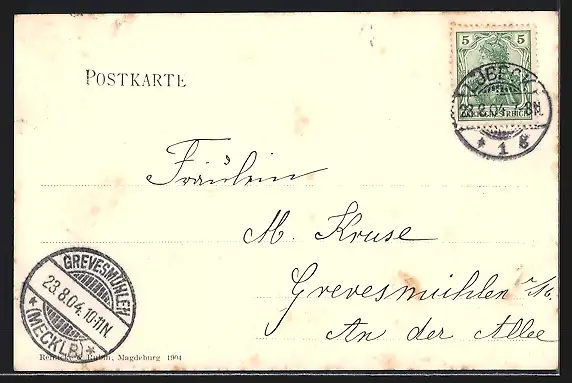 POSTKARTE
5 5
LÜBECK
23.8.04. 8N.
* 1 c
Fräulein
M. Kruse
Grevesmühlen i/M.
An der Allee
GREVESMÜHLEN
23.8.04.10-11N.
* (MECKLB) *
Reinicke & Rubin, Magdeburg 1904